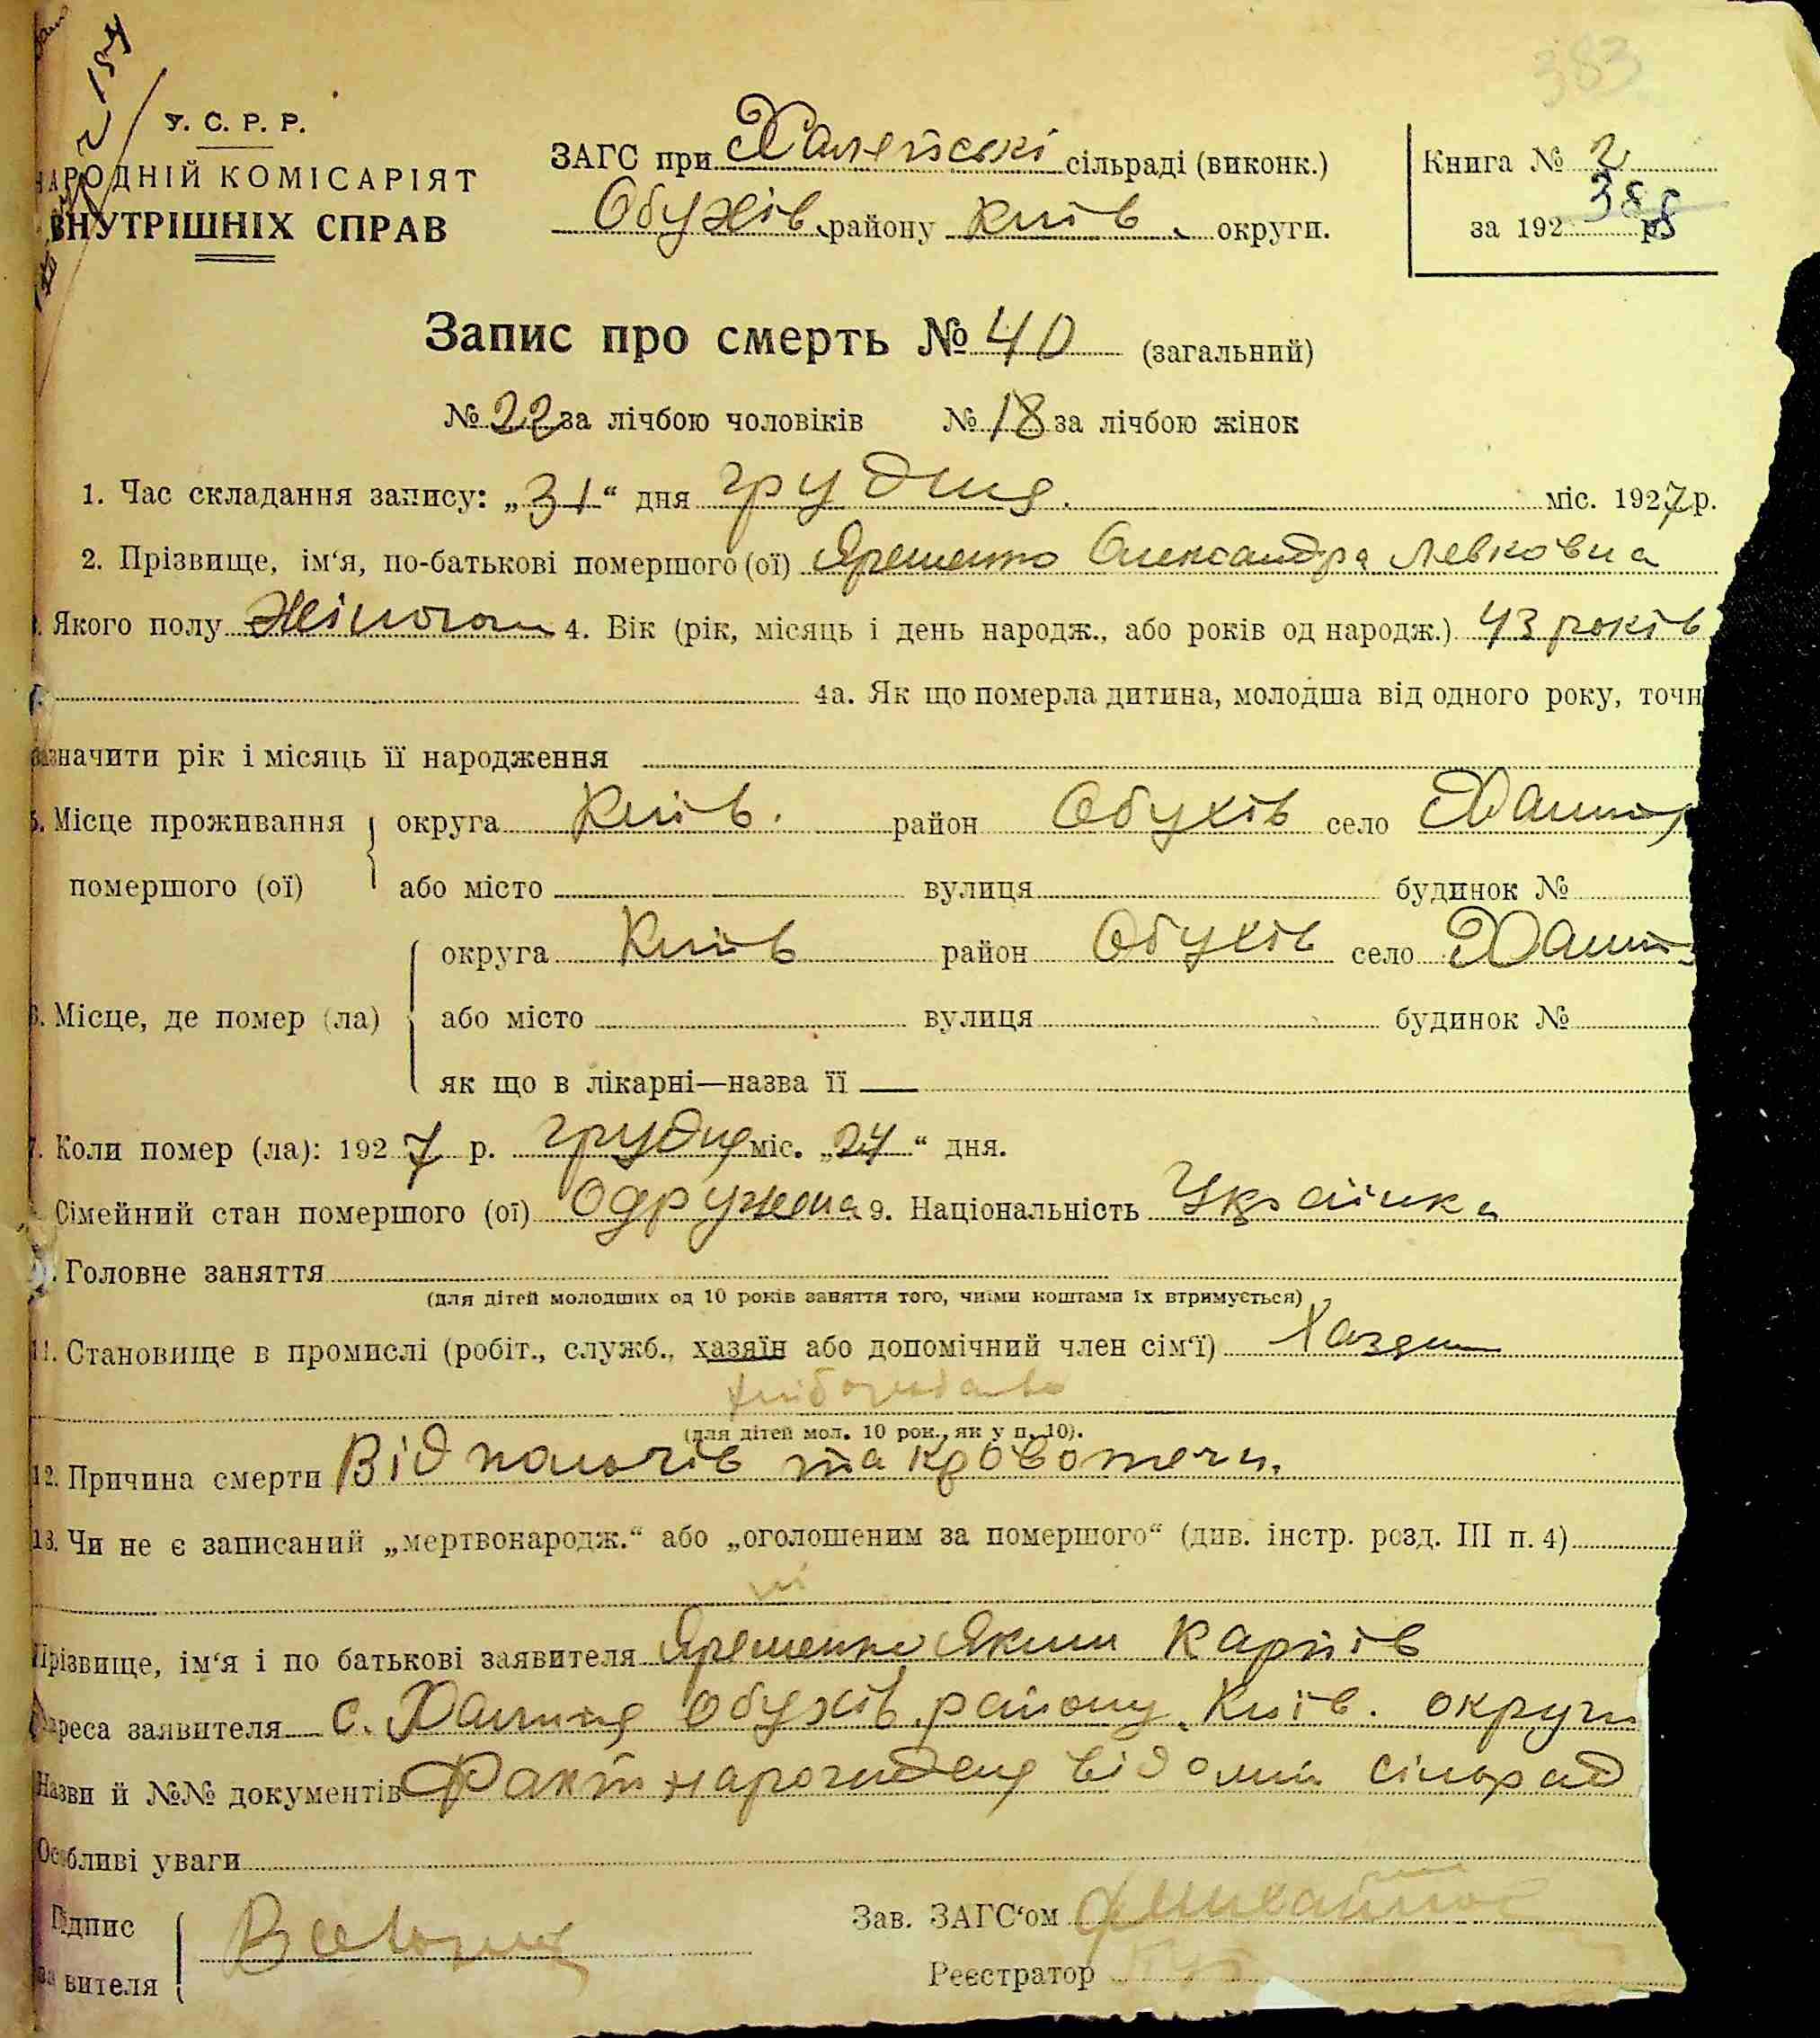 383
№ 154
У. С. Р. Р.
НАРОДНІЙ КОМІСАРІЯТ
ВНУТРІШНІХ СПРАВ
ЗАГС при Халепські сільраді (виконк.)
Обухів. району Київ. округи.
Книга № 2
388
за 192 р.
Запис про смерть № 40 (загальний)
№ 22 за лічбою чоловіків № 18 за лічбою жінок
1. Час складання запису: „31“ дня грудня. міс. 1927 р.
2. Прізвище, ім‘я, по-батькові помершого (ої) Яременко Олександра Левковна
Якого полу Жіночого 4. Вік (рік, місяць і день народж., або років од народж.) 43 років
4а. Як що померла дитина, молодша від одного року, точн
зазначити рік і місяць її народження
5. Місце проживання округа Київ. район Обухів село
помершого (ої) або місто вулиця будинок №
округа Київ район Обухів село
6. Місце, де помер (ла) або місто вулиця будинок №
як що в лікарні—назва її —
7. Коли помер (ла): 1927 р. грудня міс. „27“ дня.
Сімейний стан помершого (ої) Одружена 9. Національність Українка
Головне заняття
(для дітей молодших од 10 років заняття того, чиїми коштами їх втримується)
11. Становище в промислі (робіт., служб., хазяїн або допомічний член сім‘ї) Хазяїн
хліборобство
(для дітей мол. 10 рок., як у п. 10).
12. Причина смерти Від пологів та кровотечи.
13. Чи не є записаний „мертвонародж.“ або „оголошеним за помершого“ (див. інстр. розд. III п. 4)
ні
Прізвище, ім‘я і по батькові заявителя Яременко Яким Карпів
Адреса заявителя с. Обухів. району Київ. округи
Назви й №№ документів Факт народження відомий сільрад
Особливі уваги
Підпис
заявителя
Зав. ЗАГС‘ом
Реєстратор